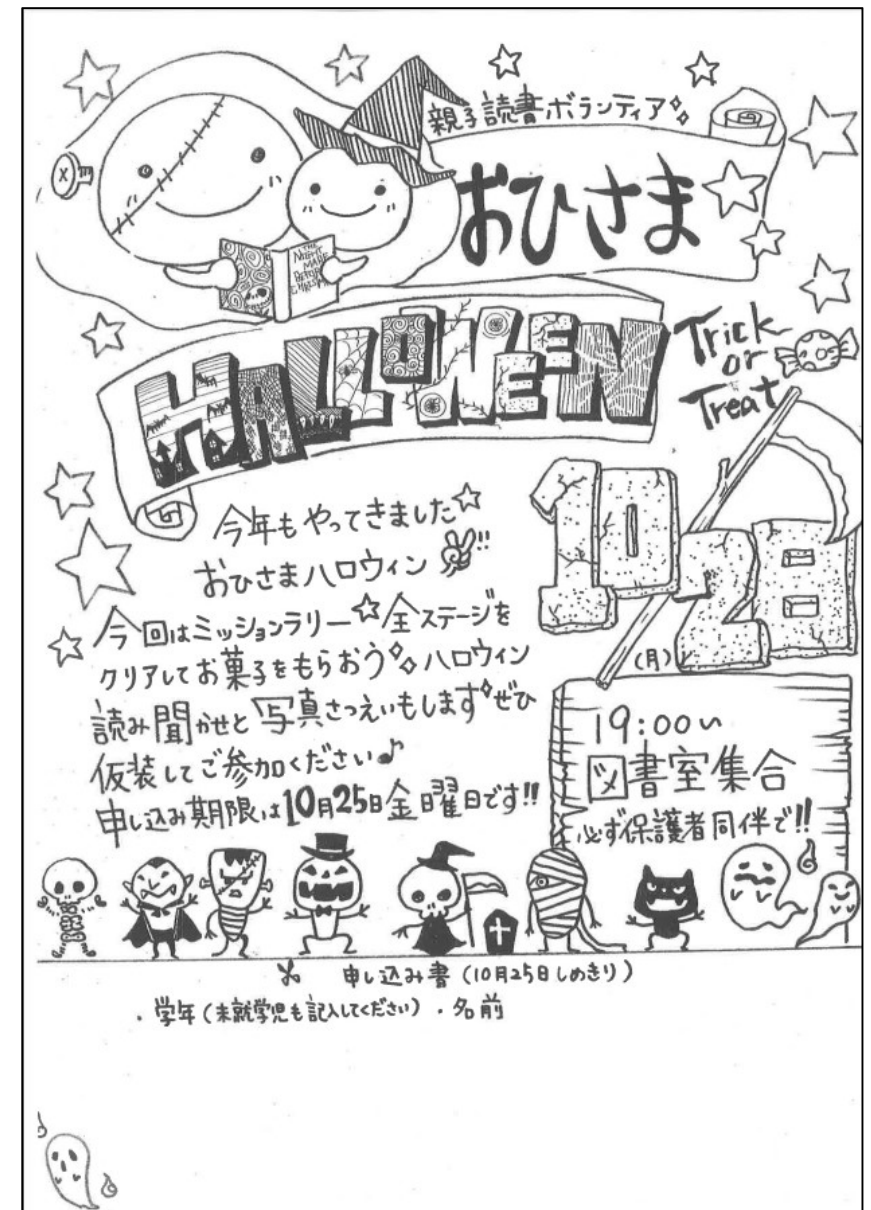 親子読書ボランティア
おひさま
THE
NIGHT
MARE
BEFORE
CHRISTMAS
HALLOWEEN
Trick
or
Treat
10/28
(月)
今年もやってきました☆
おひさまハロウィン✌!!
今回はミッションラリー☆全ステージを
クリアしてお菓子をもらおう ハロウィン
読み聞かせと写真さつえいもします ぜひ
仮装してご参加ください♪
申し込み期限は10月25日金曜日です!!
19:00〜
図書室集合
必ず保護者同伴で!!
申し込み書(10月25日しめきり)
・学年(未就学児も記入してください) ・名前